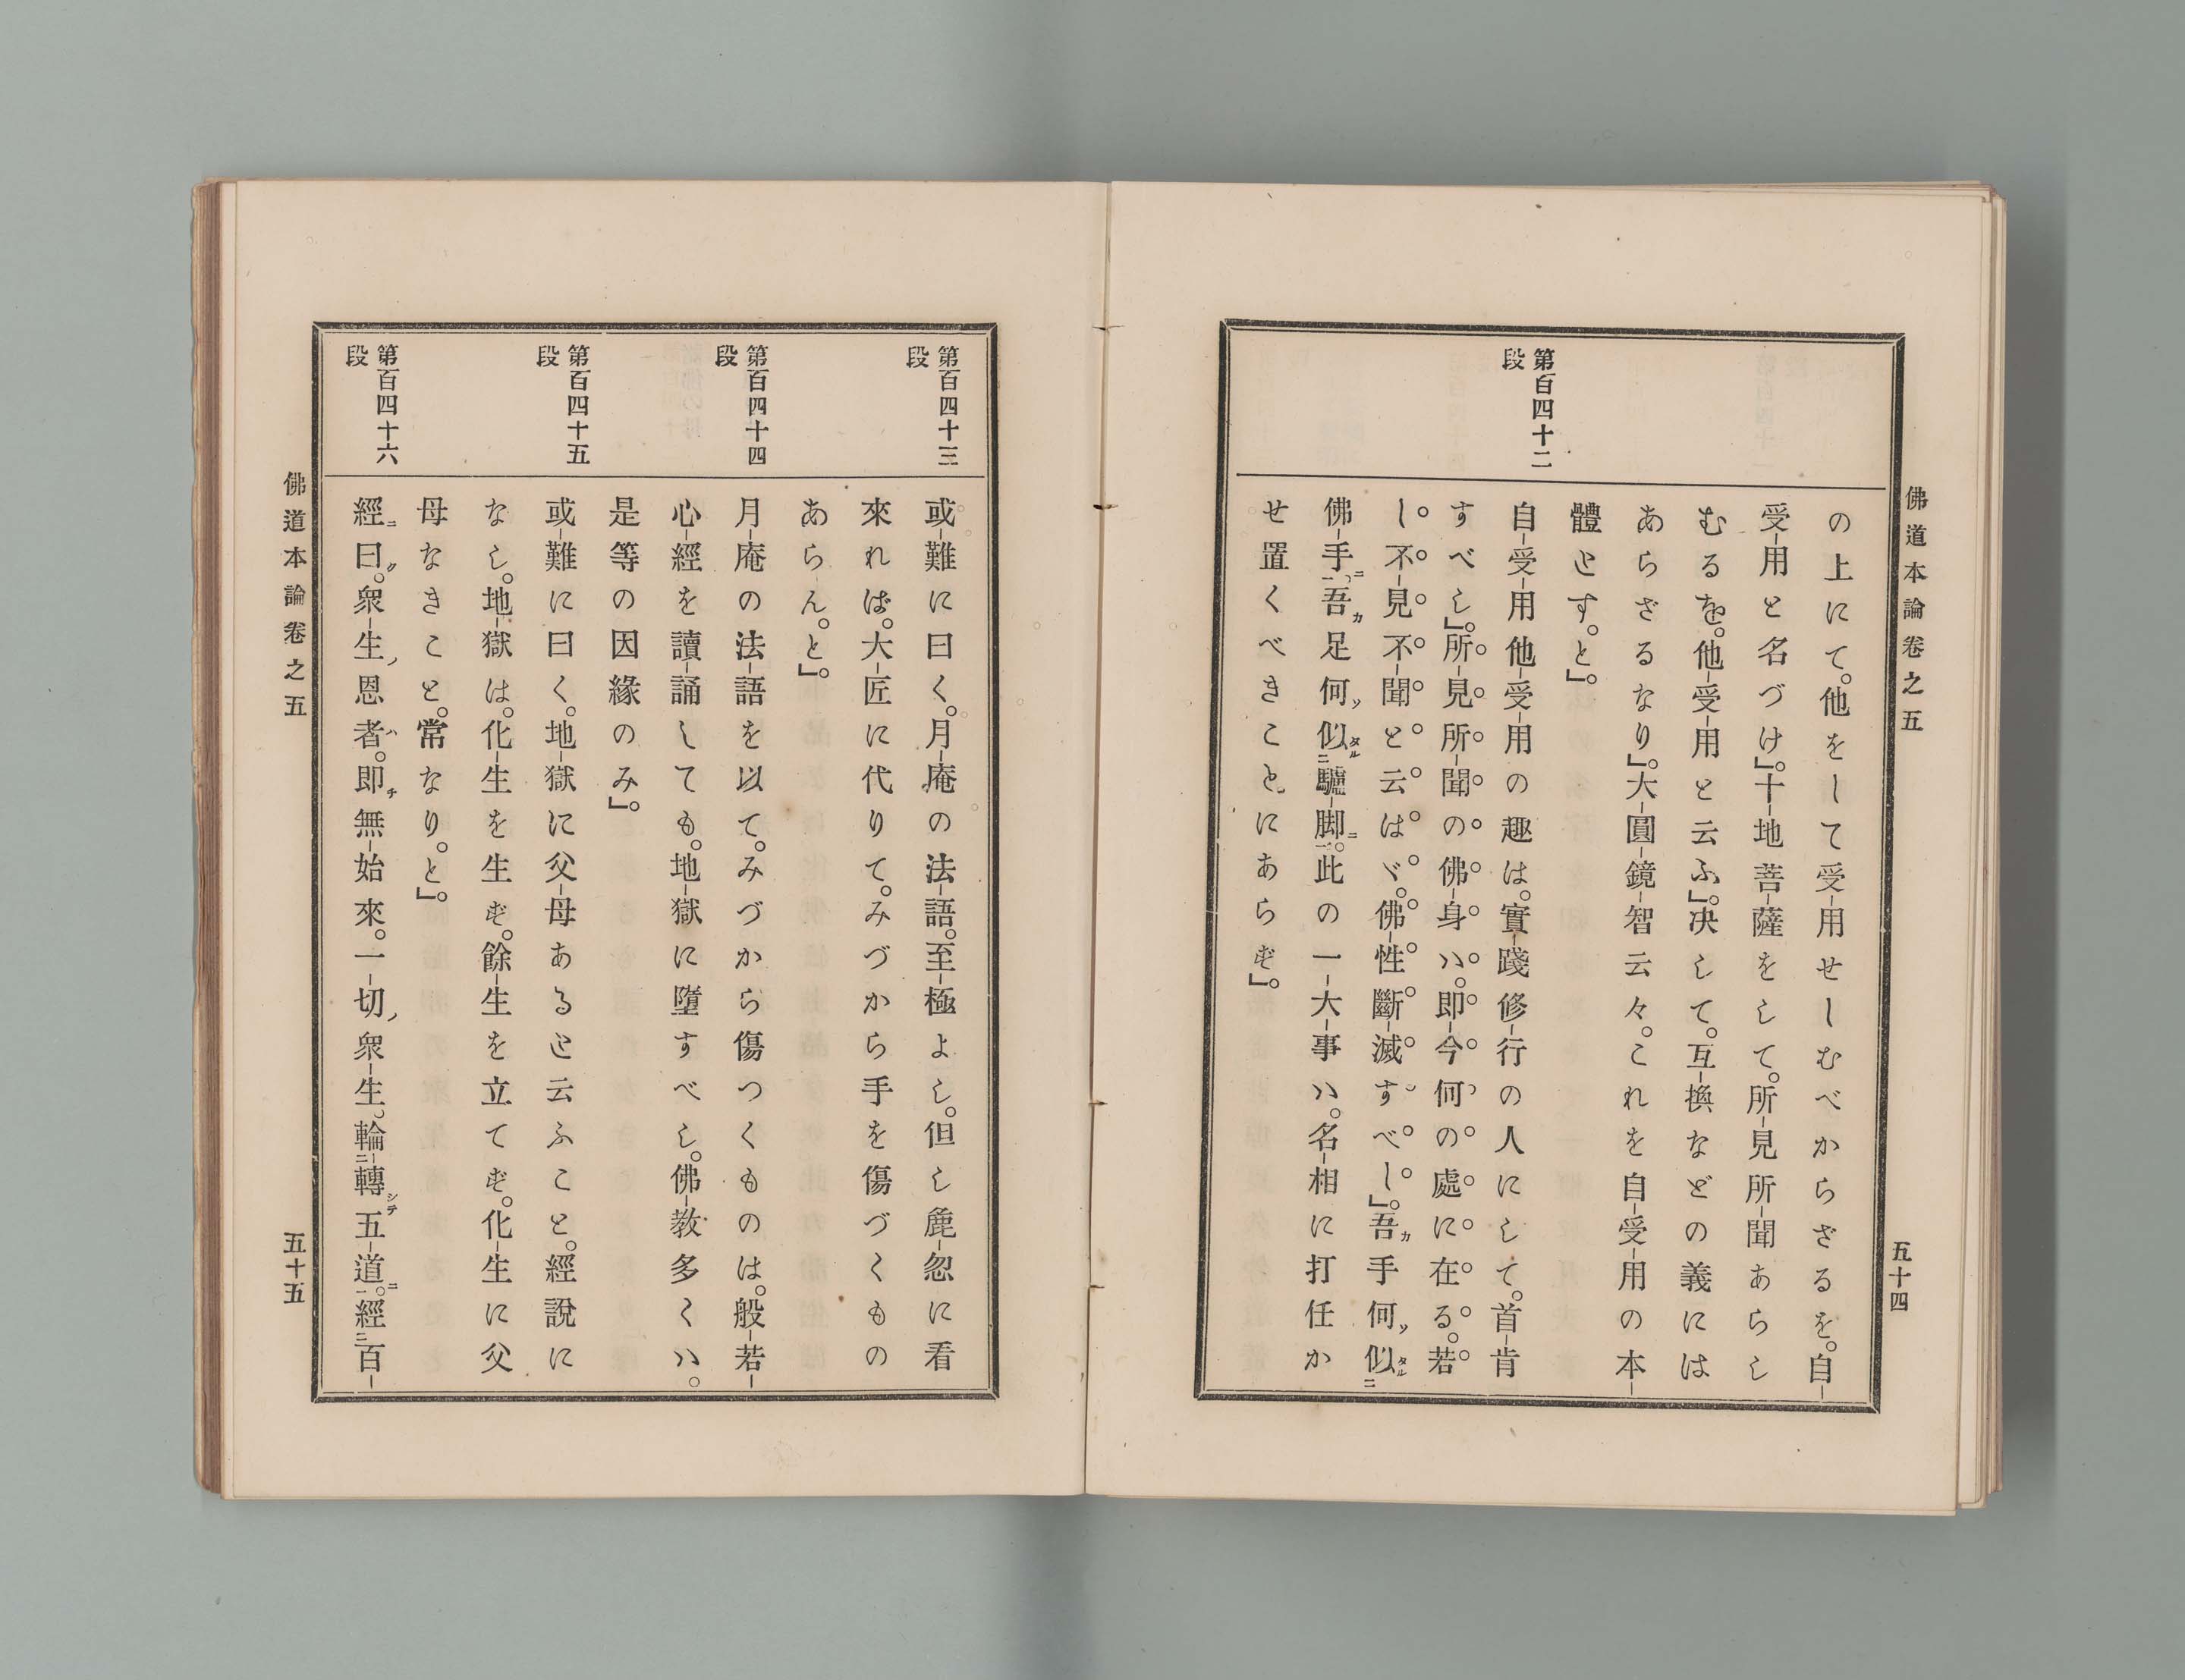 佛道本論卷之五
五十四
第百四十二
段
の上にて。他をして受用せしむべからざるを。自
受用と名づけ」。十地菩薩をして。所見所聞あらし
むるを。他受用と云ふ」。决して。互換などの義には
あらざるなり」。大圓鏡智云々。これを自受用の本
體とす。と」。
自受用他受用の趣は。實踐修行の人にして。首肯
すべし」。所見所聞の佛身ハ。即今何の處に在る。若
し不見不聞と云はゞ。佛性斷滅すべし」。吾カ手何ソ似タル二
佛手ニ一。吾カ足何ソ似タル二驢脚ニ一。此の一大事ハ。名相に打任か
せ置くべきことにあらず」。
第百四十三
段
第百四十四
段
第百四十五
段
第百四十六
段
或難に曰く。月庵の法語。至極よし。但し麁忽に看
來れば。大匠に代りて。みづから手を傷づくもの
あらん。と」。
月庵の法語を以て。みづから傷つくものは。般若
心經を讀誦しても。地獄に墮すべし。佛敎多くハ。
是等の因緣のみ」。
或難に曰く。地獄に父母あると云ふこと。經說に
なし。地獄は。化生を生ず。餘生を立てず。化生に父
母なきこと。常なり。と」。
經ニ曰ク。衆生ノ恩者ハ。即チ無始來。一切ノ衆生。輪二轉シテ五道ニ一。經二百
佛道本論卷之五
五十五